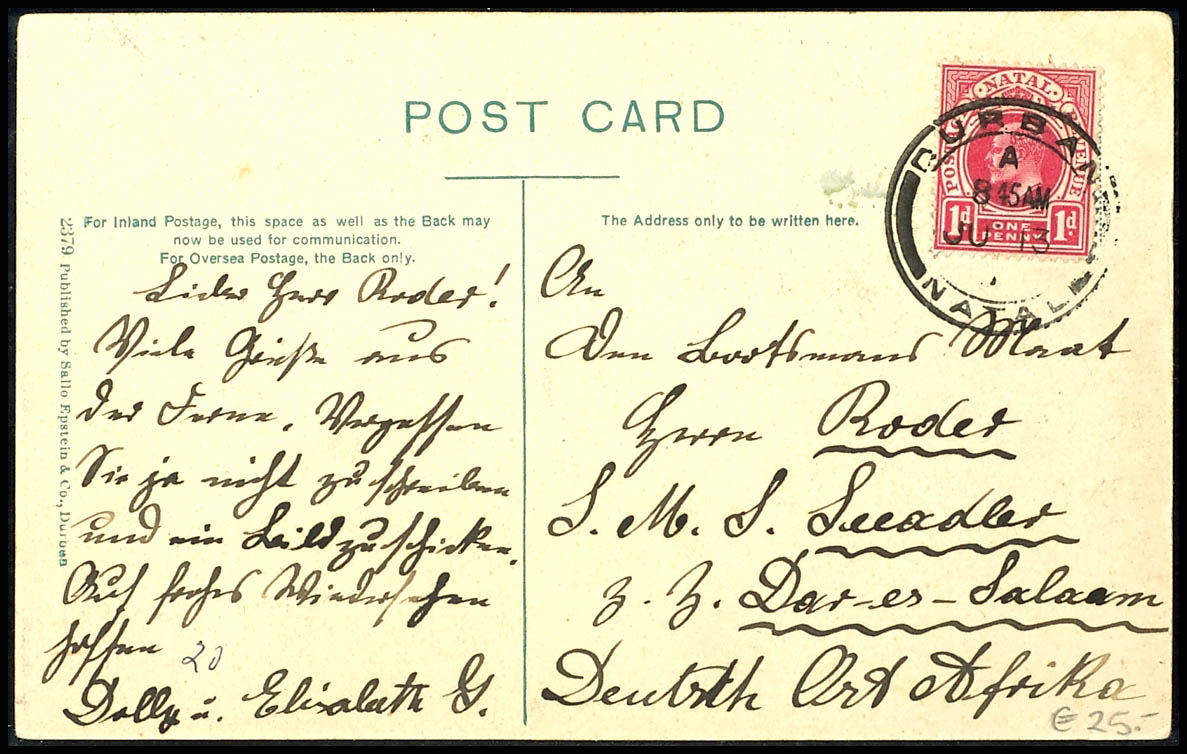 POST CARD
For Inland Postage, this space as well as the Back may
now be used for communication.
For Oversea Postage, the Back only.
The Address only to be written here.
NATAL
POSTAGE REVENUE
1d ONE PENNY 1d.
DURBAN
A
8 45AM
JU 13
NATAL
2379. Published by Sallo Epstein & Co., Durban
Lieber Herr Roder!
Viele Grüße aus
der Ferne. Vergessen
Sie ja nicht zu schreiben
und ein Bild zu schicken.
Auf frohes Wiedersehen
hoffen
Dolly u. Elisabeth G.
20
An
Den Bootsmanns Maat
Herrn Roder
S. M. S. Seeadler
z. Z. Dar-es-Salaam
Deutsch Ost Afrika
€ 25.-